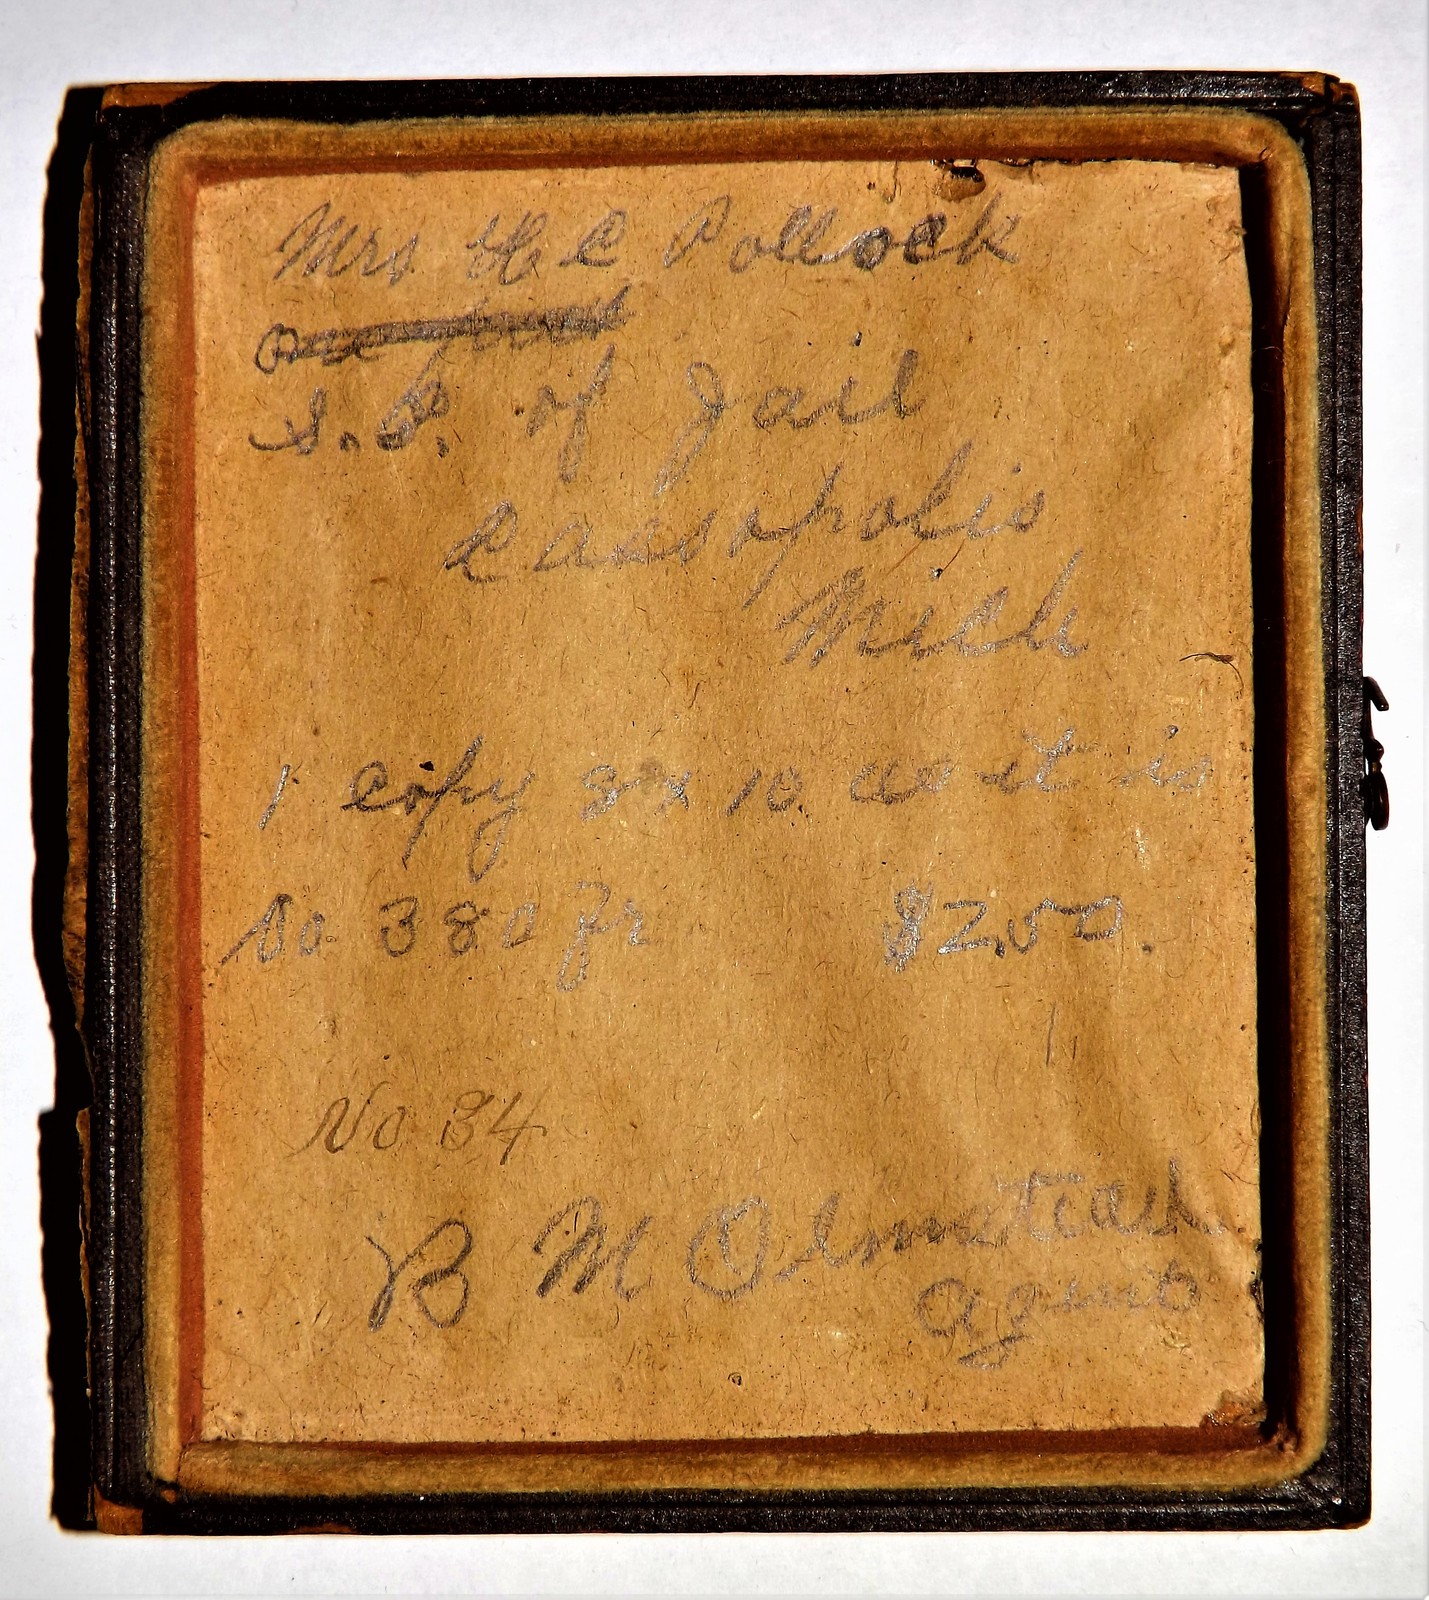 Mrs H C Pollock
S. S. of Jail
Cassopolis
Mich
1 copy 8 x 10 as it is
No. 380 fr $2.00.
No 34
B M Olmstead
Agent